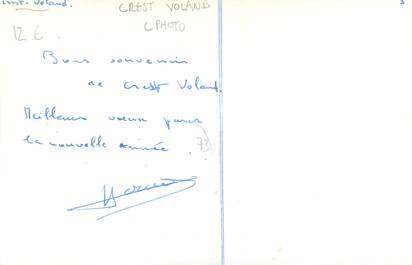 Crest-Voland.
CREST VOLAND
CPHOTO
12 €
Bons souvenirs
de Crest Voland.
Meilleurs vœux pour
la nouvelle année.
73